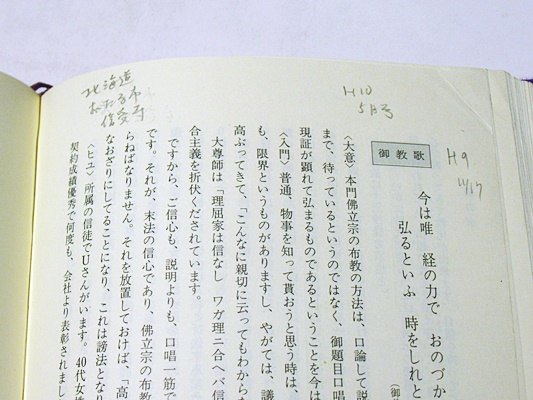 H9
11/17
御教歌
今は唯 経の力で おのづか
弘るといふ 時をしれと
（御
H10
5月号
〈大意〉本門佛立宗の布教の方法は、口論して説
まで、待っているというのではなく、御題目口唱
現証が顕れて弘まるものであるということを今は
〈入門〉普通、物事を知って貰おうと思う時は、
も、限界というものがありますし、やがては、議
高ぶってきて、「こんなに親切に云ってもわから
大尊師は「理屈家は信なし ワガ理ニ合ヘバ信
合主義を折伏くだされています。
ですから、ご信心も、説明よりも、口唱一筋で
です。それが、末法の信心であり、佛立宗の布教
らねばなりません。それを放置しておけば、「高
なおざりにしてることになり、これは謗法となり
〈ヒユ〉所属の信徒でUさんがいます。40代女性
契約成績優秀で何度も、会社より表彰されまし
北海道